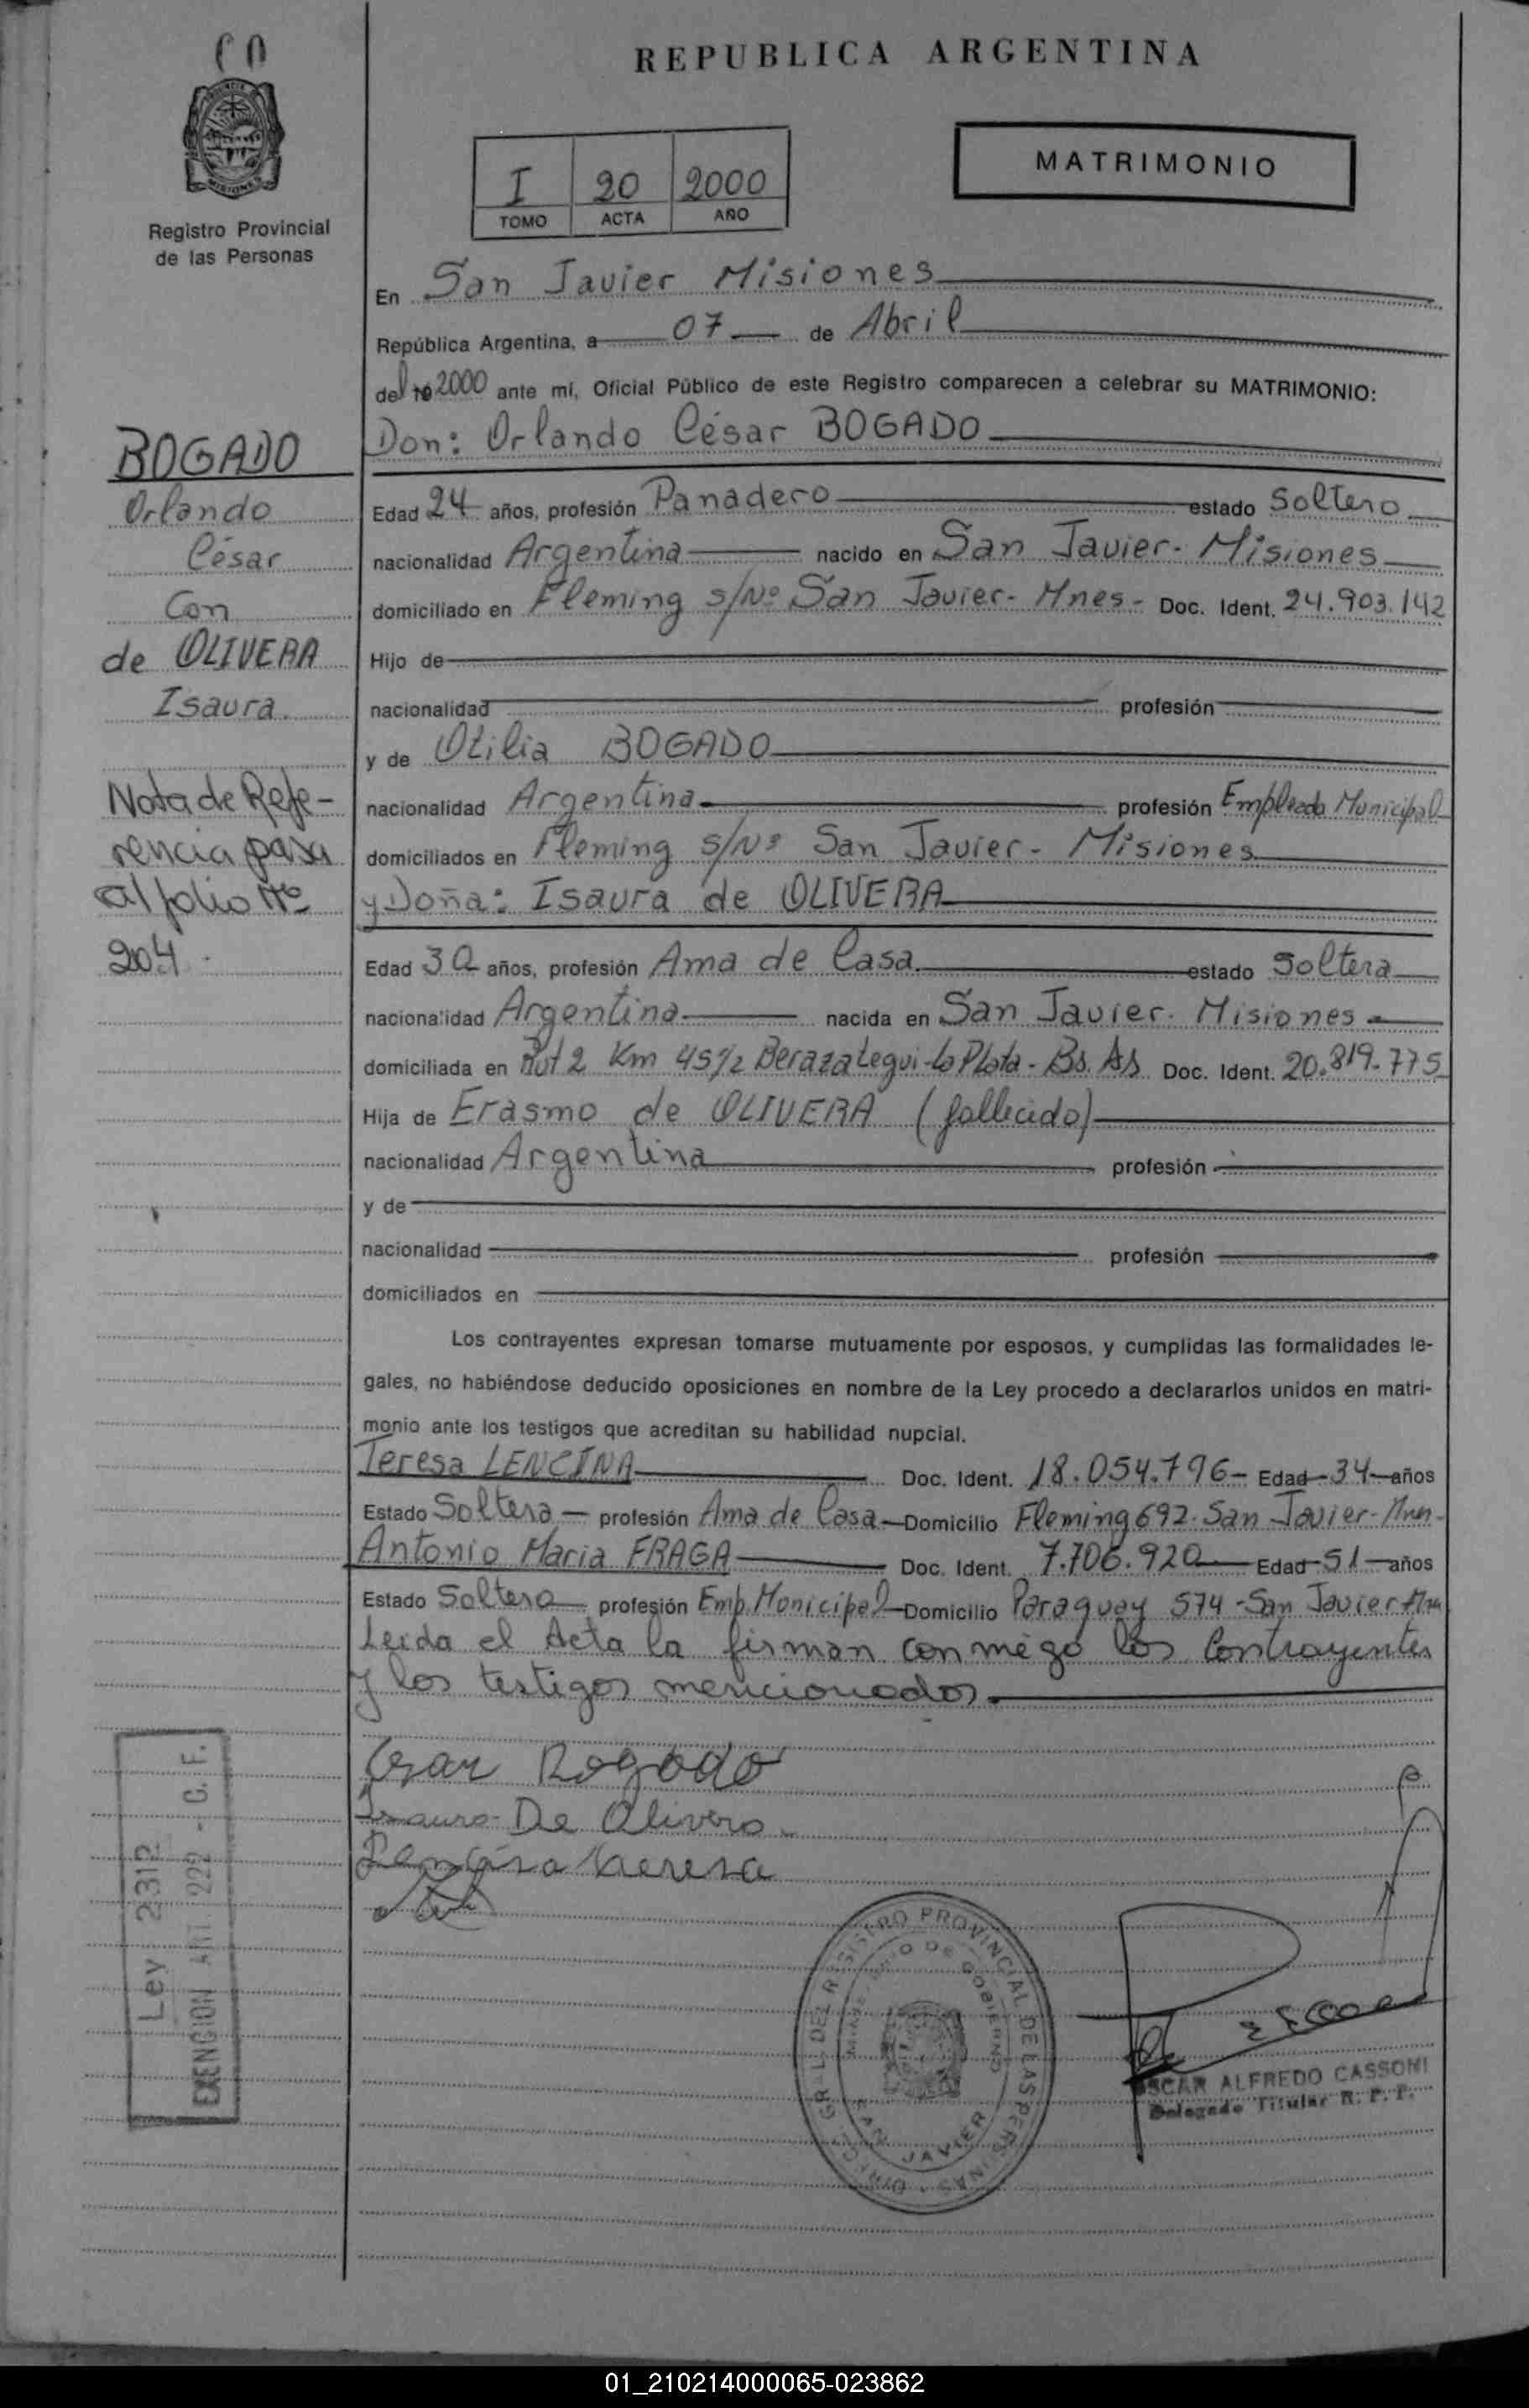 REPUBLICA ARGENTINA
MATRIMONIO
I 20 2000
TOMO ACTA AÑO
Registro Provincial
de las Personas
En San Javier Misiones
República Argentina, a 07 de Abril
del 2000 ante mí, Oficial Público de este Registro comparecen a celebrar su MATRIMONIO:
Don: Orlando César BOGADO
Edad 24 años, profesión Panadero estado Soltero
nacionalidad Argentina nacido en San Javier - Misiones
domiciliado en Fleming s/Nº San Javier - Mnes - Doc. Ident. 24.903.142
Hijo de
nacionalidad profesión
y de Otilia BOGADO
nacionalidad Argentina profesión Empleada Municipal
domiciliados en Fleming s/Nº San Javier - Misiones
y Doña: Isaura de OLIVERA
Edad 30 años, profesión Ama de Casa estado Soltera
nacionalidad Argentina nacida en San Javier - Misiones
domiciliada en Rut 2 Km 45 1/2 Berazategui - La Plata - Bs. As Doc. Ident. 20.819.775
Hija de Erasmo de OLIVERA (fallecido)
nacionalidad Argentina profesión
y de
nacionalidad profesión
domiciliados en
Los contrayentes expresan tomarse mutuamente por esposos, y cumplidas las formalidades le-
gales, no habiéndose deducido oposiciones en nombre de la Ley procedo a declararlos unidos en matri-
monio ante los testigos que acreditan su habilidad nupcial.
Teresa LENCINA Doc. Ident. 18.054.796 - Edad 34 años
Estado Soltera profesión Ama de Casa Domicilio Fleming 692 - San Javier - Mnes -
Antonio Maria FRAGA Doc. Ident. 7.706.920 Edad 51 años
Estado Soltero profesión Emp. Municipal Domicilio Paraguay 574 - San Javier Mnes
Leida el Acta la firman conmigo los Contrayentes
y los testigos mencionados.
Cesar Bogado
Isaura De Olivera
Lencina Teresa
BOGADO
Orlando
César
Con
de OLIVERA
Isaura
Nota de Refe-
rencia pasa
al folio Nº
204.
Ley 2312
EXENCION ART. 222 - C. F.
DIREC. GRAL. DEL REGISTRO PROVINCIAL DE LAS PERSONAS
MINISTERIO DE GOBIERNO
SAN JAVIER
OSCAR ALFREDO CASSONI
Delegado Titular R. P. P.
01_210214000065-023862